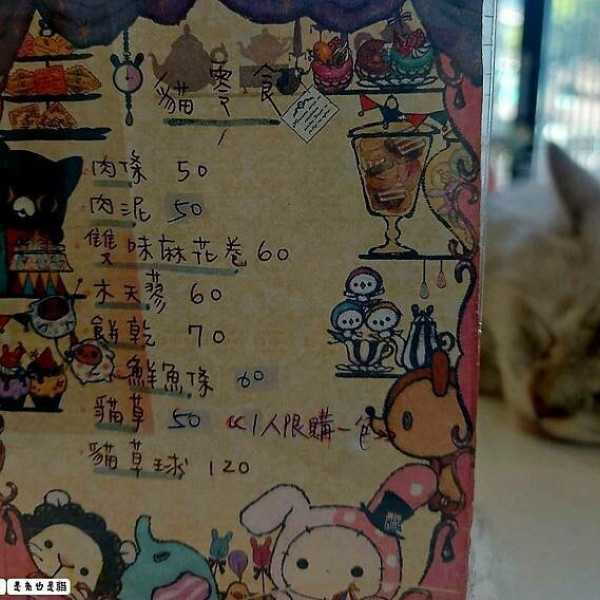 貓零食
肉條 50
肉泥 50
雙味麻花卷 60
木天蓼 60
餅乾 70
鮮魚條 60
貓草 50 <<1人限購一包
貓草球 120
是兔也是貓